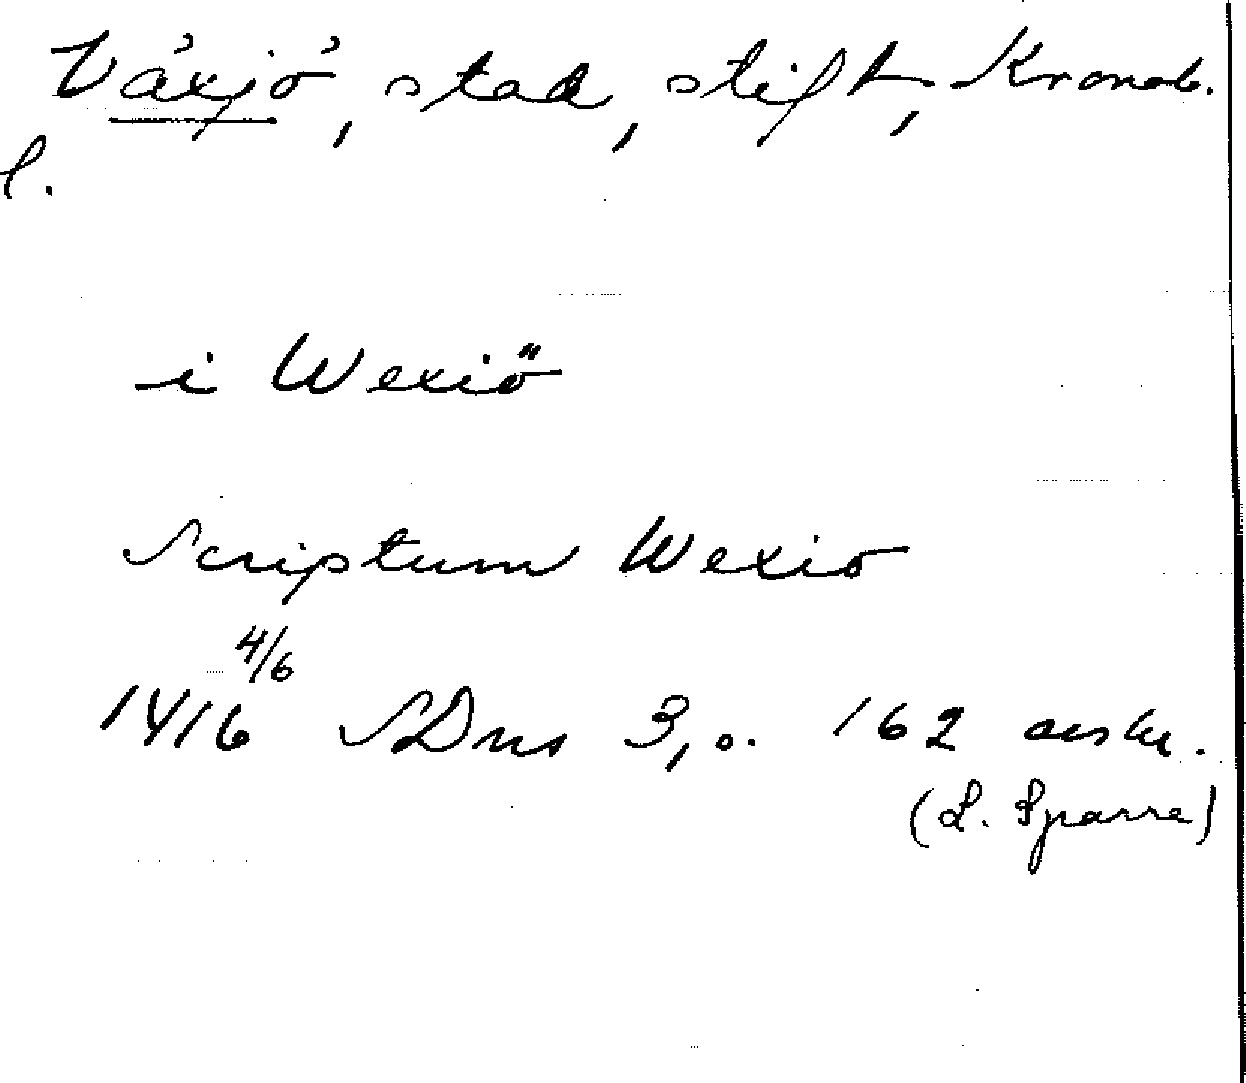 Växjö, stad, stift, Kronob.
l.
i Wexiö
Scriptum Wexio
4/6
1416 SDns 3, s. 162 avskr.
(L. Sparre)